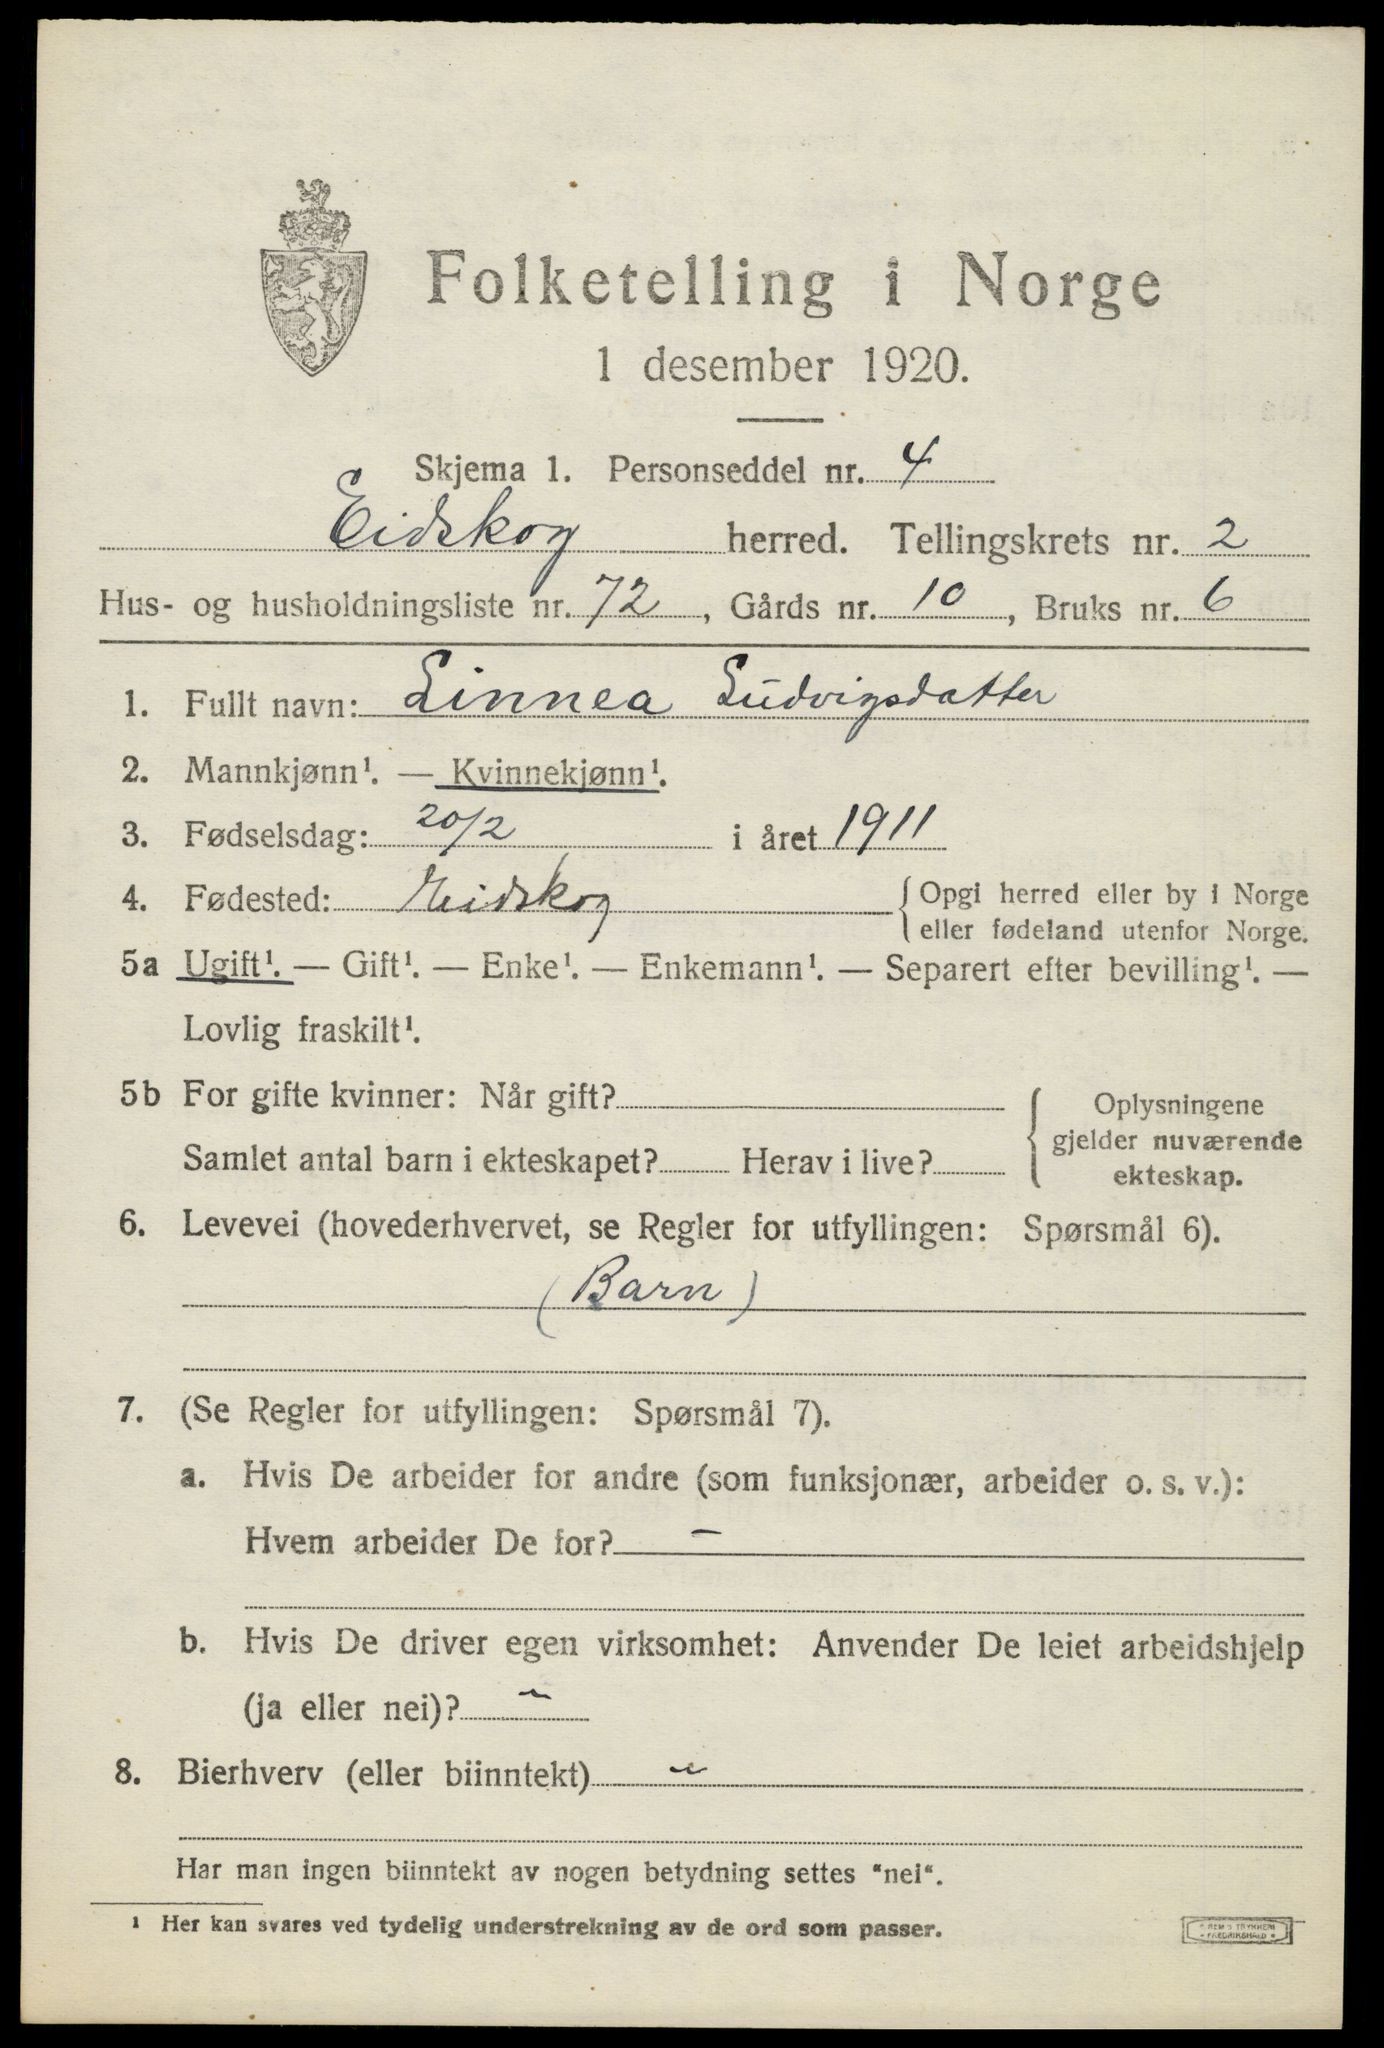 Folketelling i Norge
1 desember 1920.
Skjema 1. Personseddel nr. 4
Eidskog herred. Tellingskrets nr. 2
Hus- og husholdningsliste nr. 72, Gårds nr. 10, Bruks nr. 6
1. Fullt navn: Linnea Ludvigsdatter
2. Mannkjønn¹. — Kvinnekjønn¹.
3. Fødselsdag: 20/2 i året 1911
4. Fødested: Eidskog { Opgi herred eller by i Norge
eller fødeland utenfor Norge.
5a Ugift¹. — Gift¹. — Enke¹. — Enkemann¹. — Separert efter bevilling¹. —
Lovlig fraskilt¹.
5b For gifte kvinner: Når gift?
Samlet antal barn i ekteskapet? Herav i live?
Oplysningene
gjelder nuværende
ekteskap.
6. Levevei (hovederhvervet, se Regler for utfyllingen: Spørsmål 6).
(Barn)
7. (Se Regler for utfyllingen: Spørsmål 7).
a. Hvis De arbeider for andre (som funksjonær, arbeider o. s. v.):
Hvem arbeider De for? –
b. Hvis De driver egen virksomhet: Anvender De leiet arbeidshjelp
(ja eller nei)? –
8. Bierhverv (eller biinntekt) –
Har man ingen biinntekt av nogen betydning settes "nei".
¹ Her kan svares ved tydelig understrekning av de ord som passer.
TRYKKERI
FREDRIKSHALD